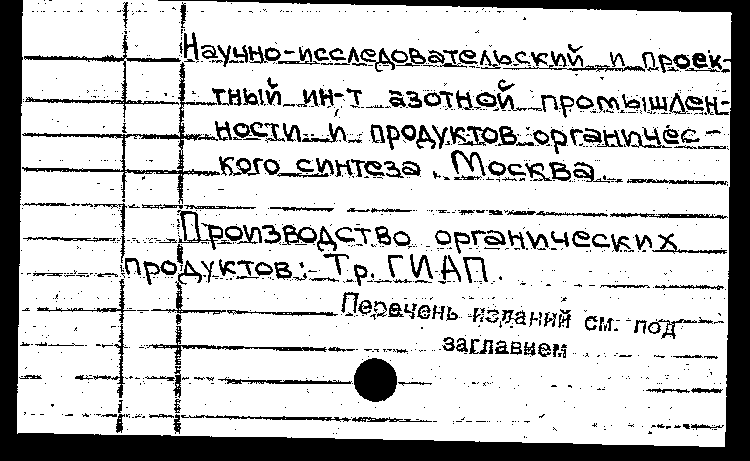 Научно-исследовательский и проек-
тный ин-т азотной промышлен-
ности и продуктов органичес-
кого синтеза, Москва.
Производство органических
продуктов:- Тр. ГИАП.
Перечень изданий см. под
заглавием